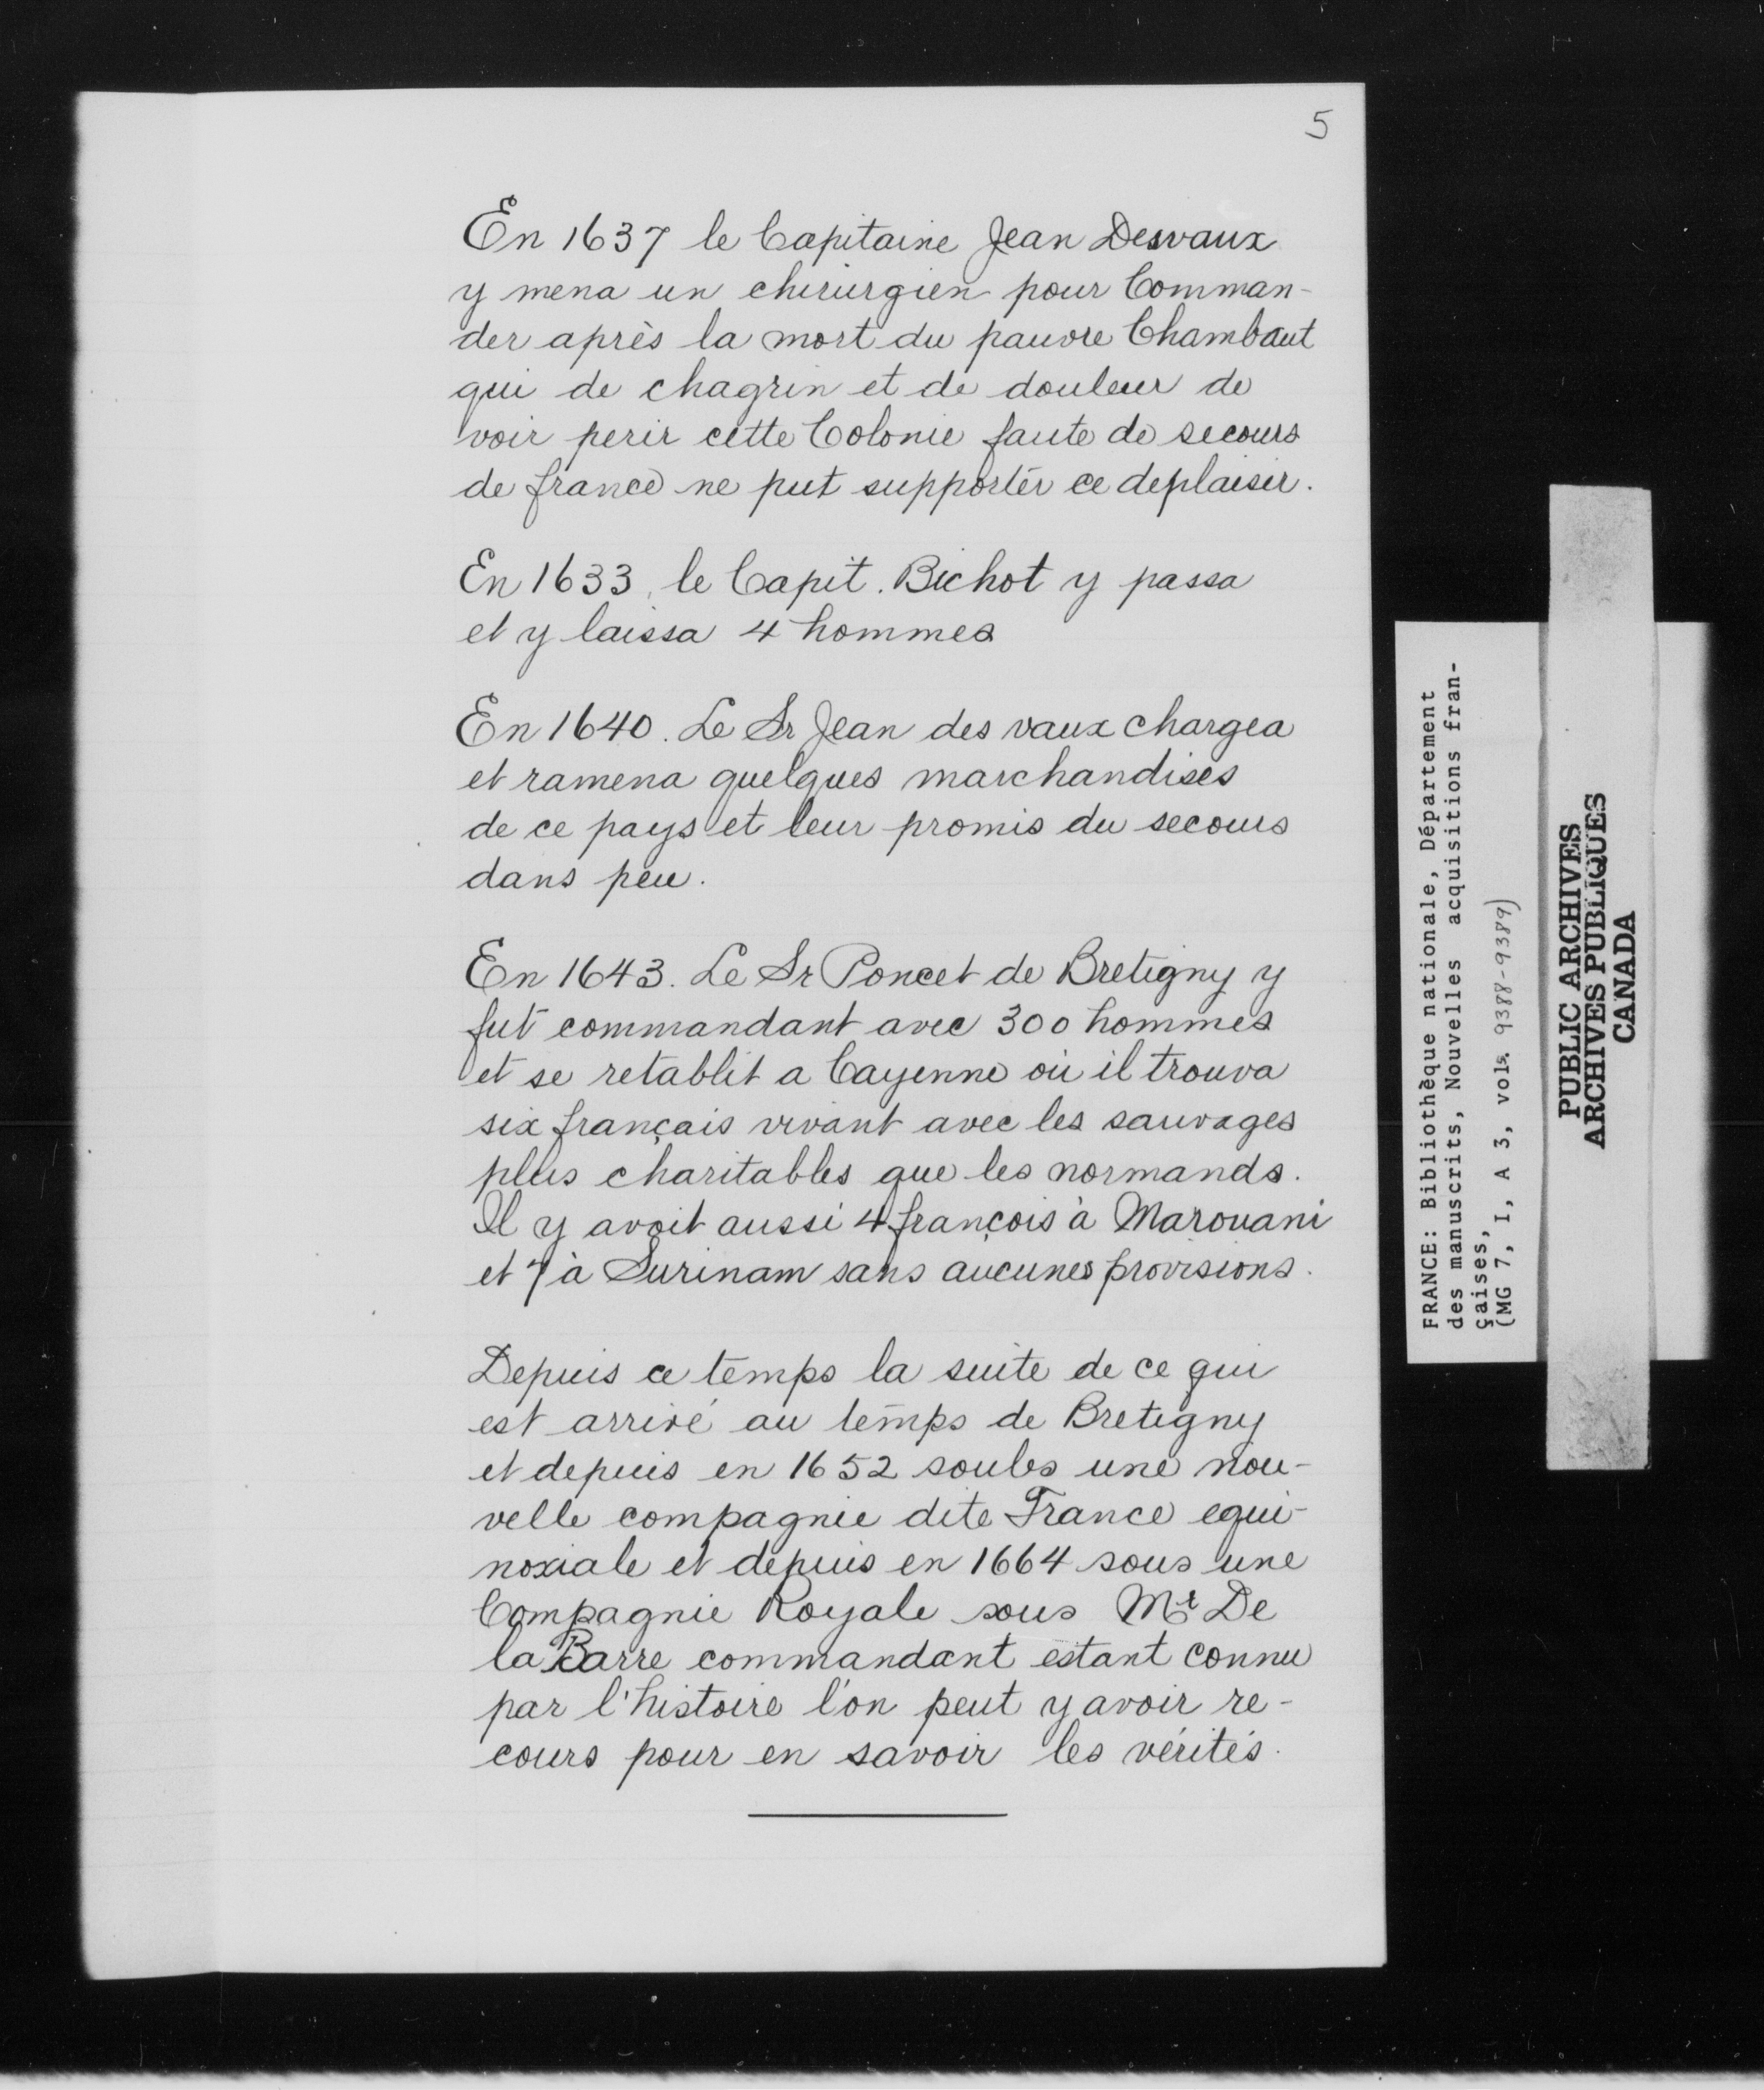 5
En 1637 le Capitaine Jean Desvaux
y mena un chirurgien pour Comman-
der après la mort du pauvre Chambaut
qui de chagrin et de douleur de
voir perir cette Colonie faute de secours
de france ne put supporter ce deplaisir.
En 1633, le Capit. Bichot y passa
et y laissa 4 hommes
En 1640. Le Sr Jean des vaux chargea
et ramena quelques marchandises
de ce pays et leur promis du secours
dans peu.
En 1643. Le Sr Poncet de Bretigny y
fut commandant avec 300 hommes
et se retablit a Cayenne où il trouva
six français vivant avec les sauvages
plus charitables que les normands.
Il y avoit aussi 4 françois à Marouani
et 7 à Surinam sans aucunes provisions.
Depuis ce temps la suite de ce qui
est arrivé au temps de Bretigny
et depuis en 1652 soubs une nou-
velle compagnie dite France equi-
noxiale et depuis en 1664 sous une
Compagnie Royale sous Mr De
la Barre commandant estant connu
par l'histoire l'on peut y avoir re-
cours pour en savoir les vérités.
FRANCE: Bibliothèque nationale, Département
des manuscrits, Nouvelles acquisitions fran-
çaises,
(MG 7, I, A 3, vols. 9388-9389)
PUBLIC ARCHIVES
ARCHIVES PUBLIQUES
CANADA